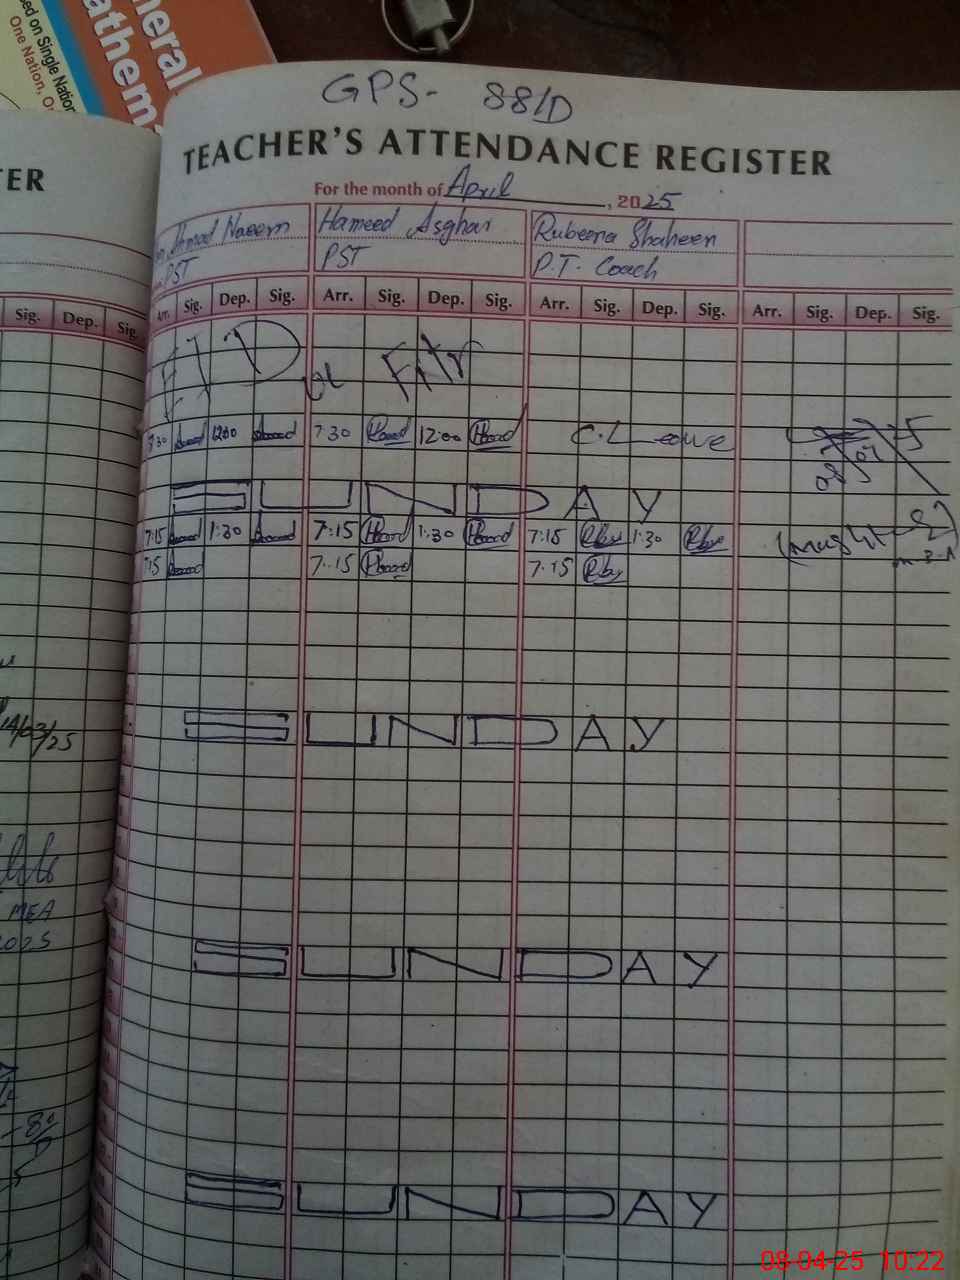 neral
athem
ed on Single Nation
One Nation, O
GPS- 88/D
TER
TEACHER'S ATTENDANCE REGISTER
For the month of April, 2025
Ahmad Naeem Hameed Asghar Rubeena Shaheen
PST PST P.T. Coach
Sig. Dep. Sig. Arr. Sig. Dep. Sig. Arr. Sig. Dep. Sig. Arr. Sig. Dep. Sig. Arr. Sig. Dep. Sig.
EID ul Fitr
7:30 12:00 7:30 12:00 C.Leave
SUNDAY
7:15 1:30 7:15 1:30 7:15 1:30
7:15 7:15 7:15
14/03/25
SUNDAY
MEA
2025
SUNDAY
SUNDAY
08-04-25 10:22